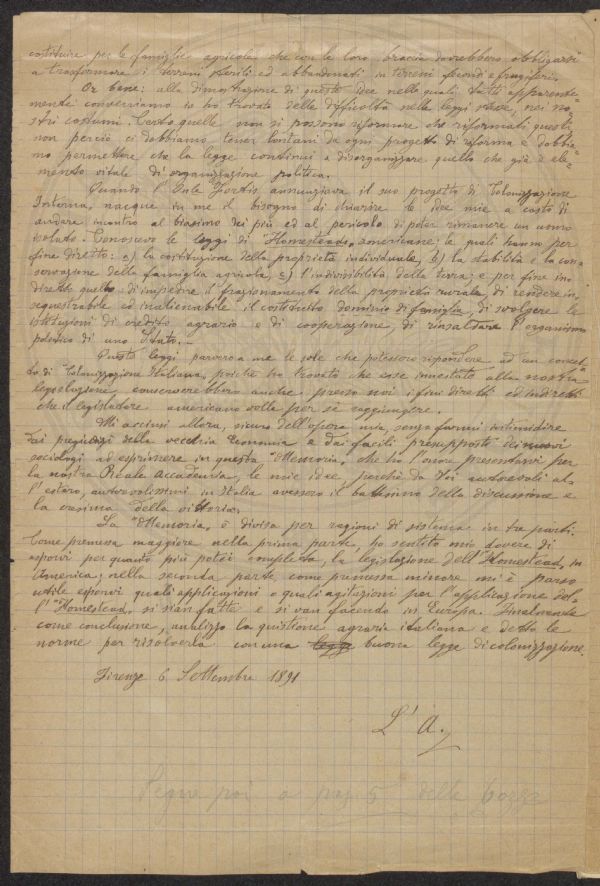 costituire per le famiglie agricole che con le loro braccia dovrebbero obbligarsi
a trasformare i terreni sterili ed abbandonati in terreni fecondi e frugiferi.
Or bene: alla dimostrazione di queste idee nelle quali tutti apparente=
mente conveniamo io ho trovato delle difficoltà nelle leggi nei no=
stri costumi. Certo quelle non si possono riformare che riformati questi
non perciò ci dobbiamo tener lontani da ogni progetto di riforma e dobbia=
mo permettere che la legge continui a disorganizzare quello che già è ele=
mento vitale di organizzazione politica.
Quando l'On.le Fortis annunziava il suo progetto di Colonizzazione
Interna, nacque in me il bisogno di chiarire le idee mie a costo di
andare incontro al biasimo dei più ed al pericolo di poter rimanere un uomo
isolato. Conoscevo le leggi di "Homestead" americane; le quali hanno per
fine diretto: a) la costituzione della proprietà individuale, b) la stabilità e la con=
servazione della famiglia agricola, c) l'indivisibilità della terra; e per fine in=
diretto quello: di impedire il frazionamento della proprietà rurale, di rendere in=
sequestrabile ed inalienabile il costituito dominio di famiglia, di svolgere le
istituzioni di credito agrario e di cooperazione, di rinsaldare l'organismo
politico di uno Stato.—
Queste leggi parvero a me le sole che potessero rispondere ad un concet=
to di Colonizzazione Italiana, poichè ho trovato che esse innestate alla nostra
legislazione conserverebbero anche presso noi i fini diretti ed indiretti
che il legislatore americano volle per sè raggiungere.
Mi accinsi allora, sicuro dell'opera mia, senza farmi intimidire
dai pregiudizi della vecchia Economia e dai facili presupposti dei nuovi
sociologi ad esprimere in questa "Memoria" che ho l'onore presentarvi per
la nostra Reale Accademia, le mie idee, perchè da Voi autorevoli al=
l'estero, autorevolissimi in Italia avessero il battesimo della discussione e
la della vittoria.
La "Memoria" è divisa per ragioni di sistema in tre parti.
Come premessa maggiore nella prima parte, ho sentito mio dovere di
esporvi per quanto più potei completa, la legislazione dell'"Homestead" in
America; nella seconda parte, come premessa minore mi è parso
utile esporvi quali applicazioni o quali agitazioni per l'applicazione del=
l'"Homestead" si sian fatte e si van facendo in Europa. Finalmente
come conclusione, analizzo la quistione agraria italiana e detto le
norme per risolverla con una legge buona legge di colonizzazione.
Firenze 6 Settembre 1891
L'A.
Segue poi a pag 5 delle bozze